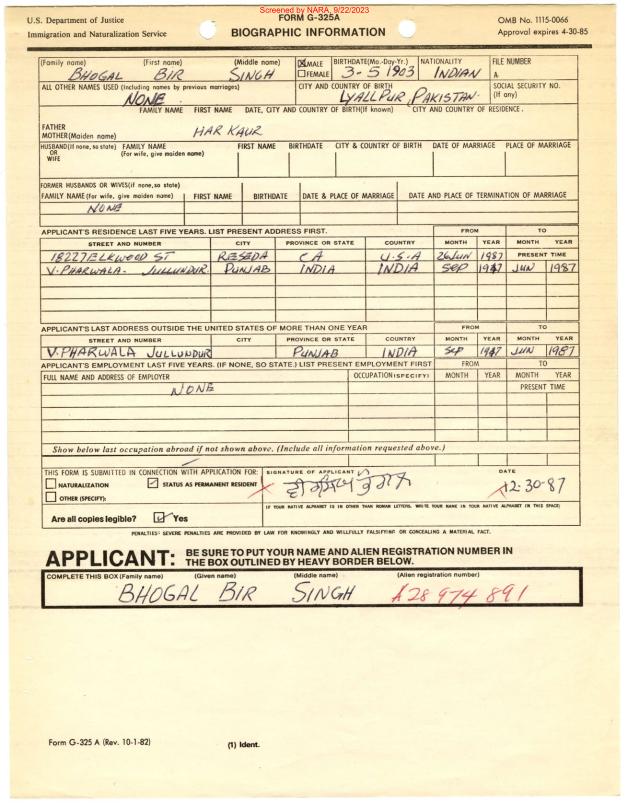 Screened by NARA, 9/22/2023
U.S. Department of Justice
Immigration and Naturalization Service
FORM G-325A
BIOGRAPHIC INFORMATION
OMB No. 1115-0066
Approval expires 4-30-85
(Family name) (First name) (Middle name) ☒MALE BIRTHDATE(Mo.-Day-Yr.) NATIONALITY FILE NUMBER
BHOGAL BIR SINGH ☐FEMALE 3-5 1903 INDIAN A
ALL OTHER NAMES USED (Including names by previous marriages) CITY AND COUNTRY OF BIRTH SOCIAL SECURITY NO. (If any)
NONE LYALLPUR, PAKISTAN.
FAMILY NAME FIRST NAME DATE, CITY AND COUNTRY OF BIRTH(If known) CITY AND COUNTRY OF RESIDENCE.
FATHER
MOTHER(Maiden name) HAR KAUR
HUSBAND(If none, so state) OR WIFE FAMILY NAME (For wife, give maiden name) FIRST NAME BIRTHDATE CITY & COUNTRY OF BIRTH DATE OF MARRIAGE PLACE OF MARRIAGE
FORMER HUSBANDS OR WIVES(if none, so state)
FAMILY NAME (For wife, give maiden name) FIRST NAME BIRTHDATE DATE & PLACE OF MARRIAGE DATE AND PLACE OF TERMINATION OF MARRIAGE
NONE
APPLICANT'S RESIDENCE LAST FIVE YEARS. LIST PRESENT ADDRESS FIRST. FROM TO
STREET AND NUMBER CITY PROVINCE OR STATE COUNTRY MONTH YEAR MONTH YEAR
18227 ELKWOOD ST RESEDA CA U.S.A 26 JUN 1987 PRESENT TIME
V. PHARWALA- JULLUNDUR. PUNJAB INDIA INDIA SEP 1947 JUN 1987
APPLICANT'S LAST ADDRESS OUTSIDE THE UNITED STATES OF MORE THAN ONE YEAR FROM TO
STREET AND NUMBER CITY PROVINCE OR STATE COUNTRY MONTH YEAR MONTH YEAR
V. PHARWALA JULLUNDUR PUNJAB INDIA SEP 1947 JUN 1987
APPLICANT'S EMPLOYMENT LAST FIVE YEARS. (IF NONE, SO STATE.) LIST PRESENT EMPLOYMENT FIRST FROM TO
FULL NAME AND ADDRESS OF EMPLOYER OCCUPATION (SPECIFY) MONTH YEAR MONTH YEAR
NONE PRESENT TIME
Show below last occupation abroad if not shown above. (Include all information requested above.)
THIS FORM IS SUBMITTED IN CONNECTION WITH APPLICATION FOR: SIGNATURE OF APPLICANT DATE
☐ NATURALIZATION ☑ STATUS AS PERMANENT RESIDENT 12-30-87
☐ OTHER (SPECIFY):
IF YOUR NATIVE ALPHABET IS IN OTHER THAN ROMAN LETTERS, WRITE YOUR NAME IN YOUR NATIVE ALPHABET IN THIS SPACE:
Are all copies legible? ☑ Yes
PENALTIES: SEVERE PENALTIES ARE PROVIDED BY LAW FOR KNOWINGLY AND WILLFULLY FALSIFYING OR CONCEALING A MATERIAL FACT.
APPLICANT: BE SURE TO PUT YOUR NAME AND ALIEN REGISTRATION NUMBER IN
THE BOX OUTLINED BY HEAVY BORDER BELOW.
COMPLETE THIS BOX (Family name) (Given name) (Middle name) (Alien registration number)
BHOGAL BIR SINGH A28 974 891
Form G-325 A (Rev. 10-1-82) (1) Ident.